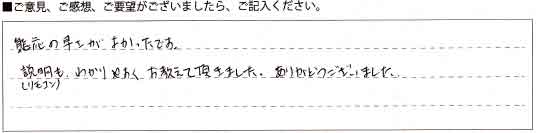 ■ご意見、ご感想、ご要望がございましたら、ご記入ください。
の手がよかったです。
説明も、わかりやすく お教えて頂きました。ありがとうございました。
(リモコン)